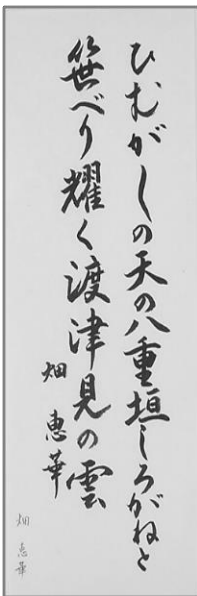 ひむがしの天の八重垣しろがねと
笹べり耀く渡津見の雲
畑 恵華
畑 恵華